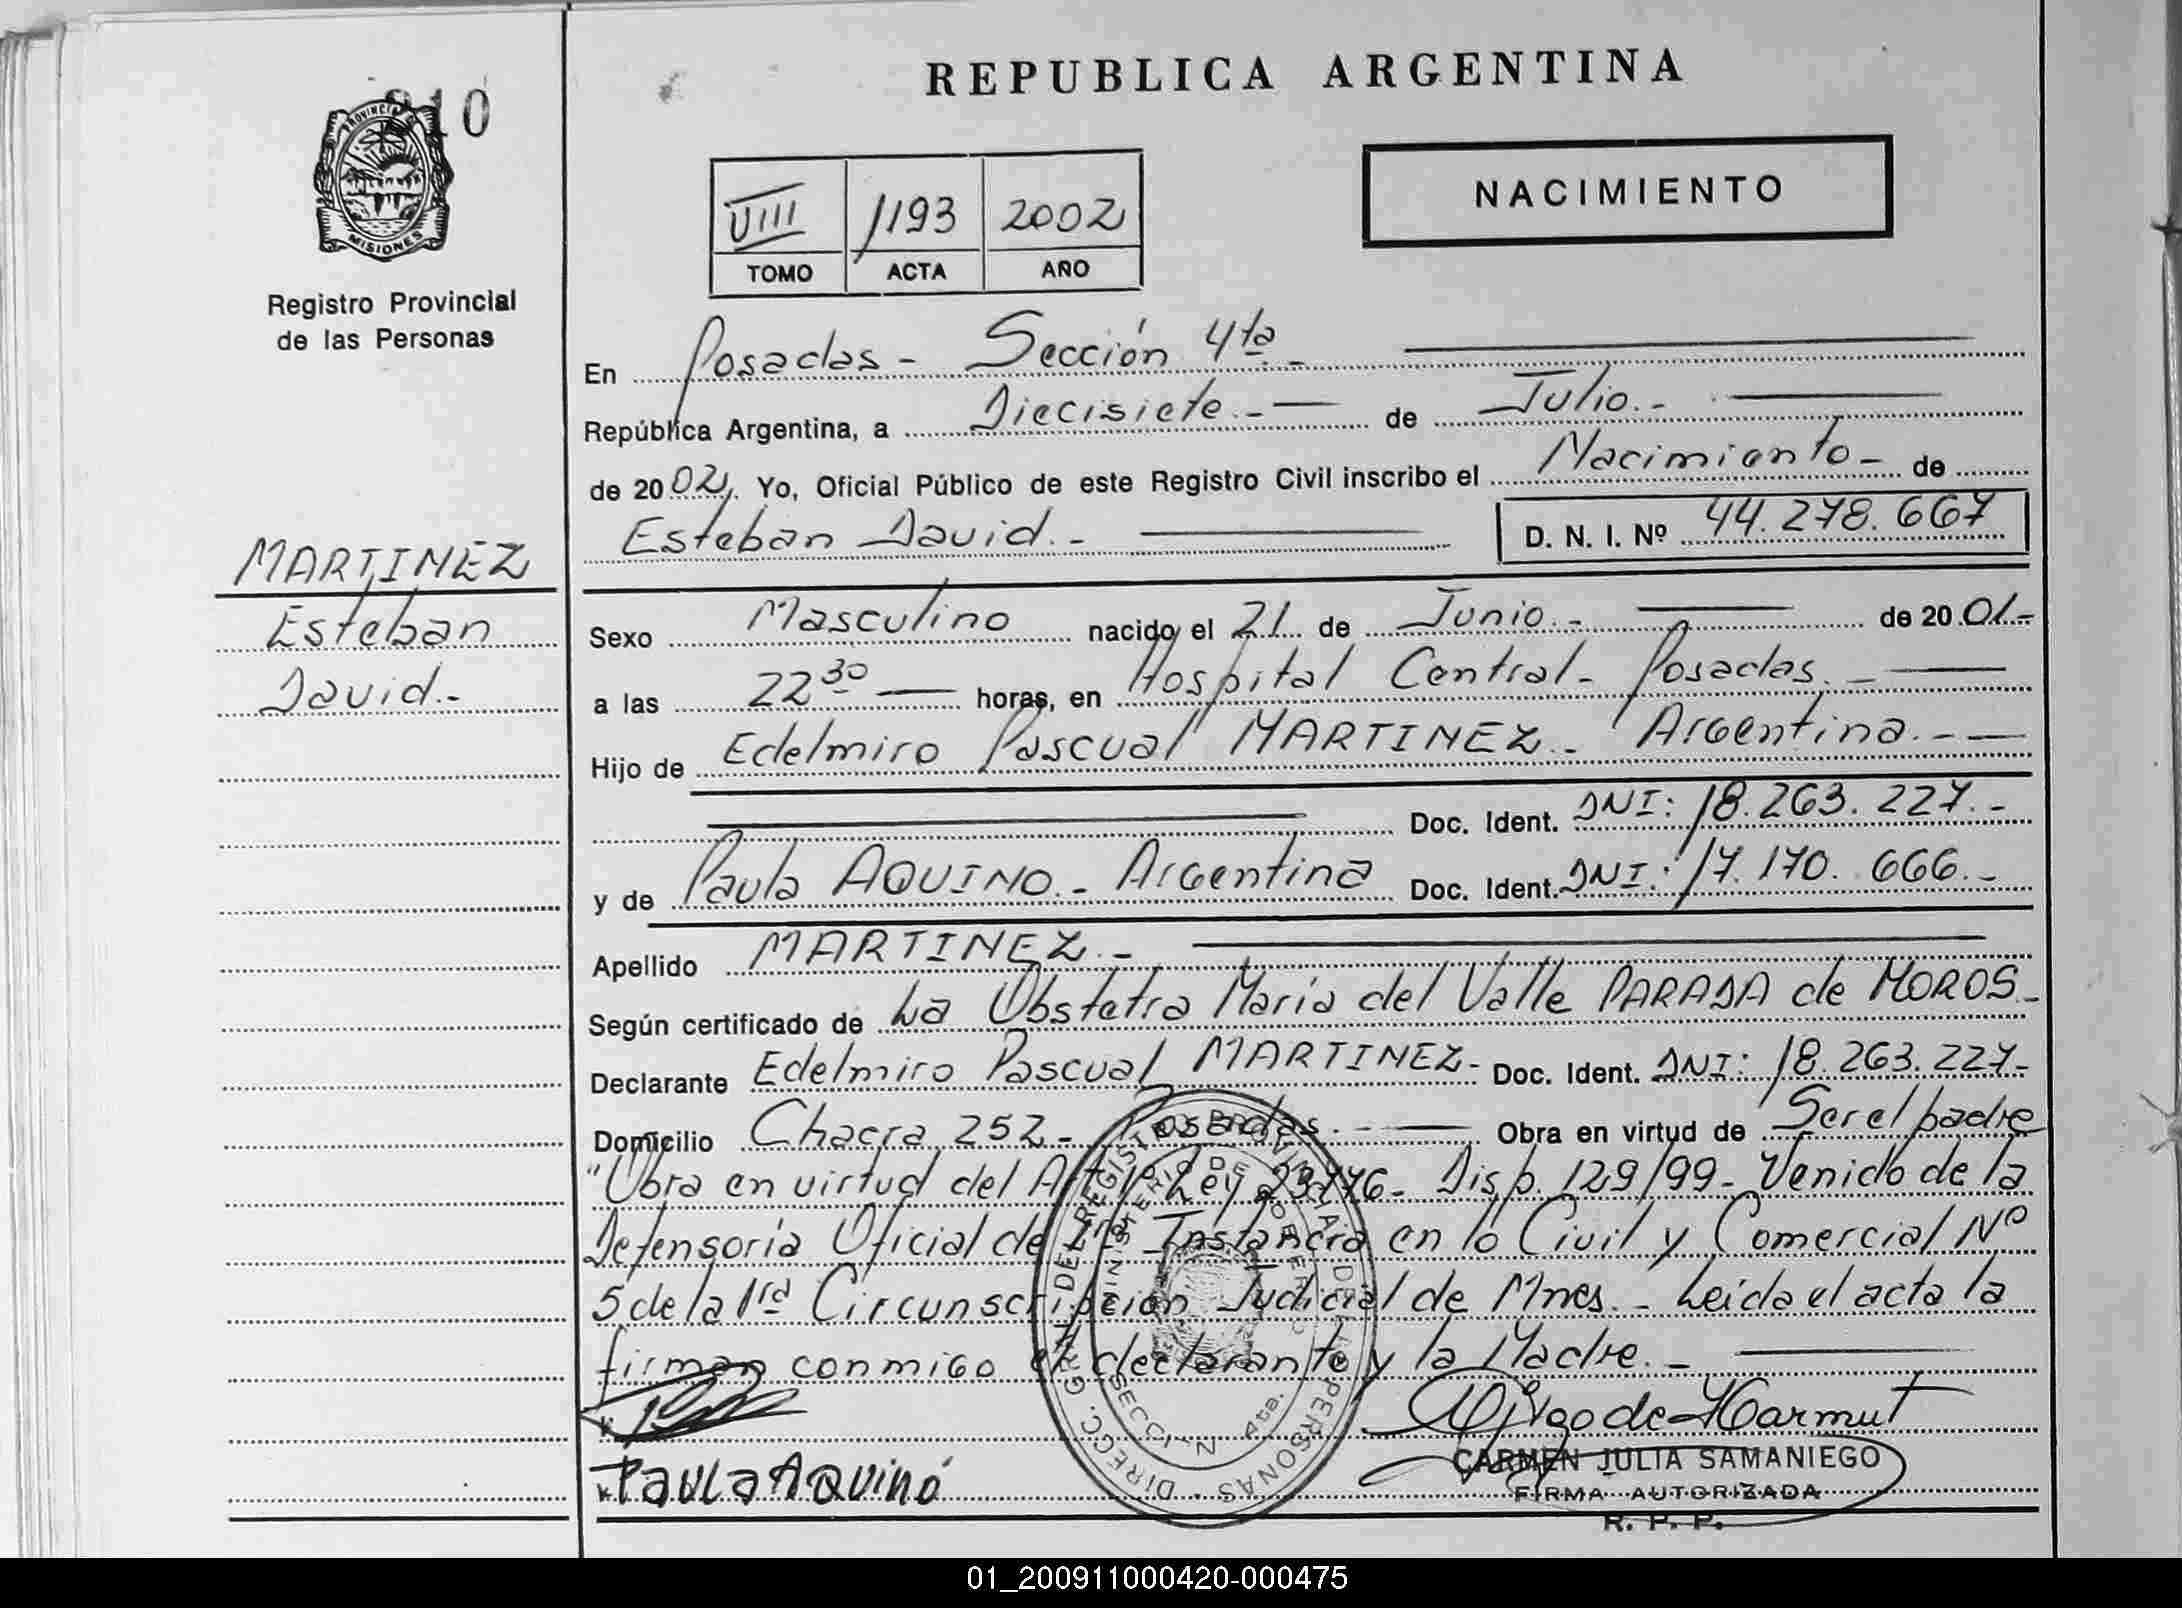 REPUBLICA ARGENTINA
10
PROVINCIA DE
MISIONES
Registro Provincial
de las Personas
NACIMIENTO
VIII 1193 2002
TOMO ACTA AÑO
En Posadas - Sección 4ta -
República Argentina, a Diecisiete.- de Julio.-
de 2002, Yo, Oficial Público de este Registro Civil inscribo el Nacimiento- de
Esteban David.- D. N. I. Nº 44.278.667
MARTINEZ
Esteban
David.-
Sexo Masculino nacido el 21 de Junio.- de 2001.-
a las 22 30 horas, en Hospital Central- Posadas.-
Hijo de Edelmiro Pascual MARTINEZ.- Argentina.-
Doc. Ident. DNI: 18.263.227.-
y de Paula AQUINO.- Argentina Doc. Ident. DNI: 17.170.666.-
Apellido MARTINEZ.-
Según certificado de La Obstetra Maria del Valle PARADA de MOROS-
Declarante Edelmiro Pascual MARTINEZ- Doc. Ident. DNI: 18.263.227-
Domicilio Chacra 252- Posadas.- Obra en virtud de Ser el padre
"Obra en virtud del Art. Ley 23776- Disp. 129/99- Venido de la
Defensoría Oficial de 1ra Instancia en lo Civil y Comercial Nº
5 de la 1ra Circunscripción Judicial de Mnes.- Leida el acta la
firman conmigo el declarante y la Madre.-
Paula AQuinó
CARMEN JULIA SAMANIEGO
FIRMA AUTORIZADA
R. P. P.
DIRECC. GRAL. DEL REGISTRO PROVINCIAL DE LAS PERSONAS
MINISTERIO DE GOBIERNO
SECCION 4ta.
01_200911000420-000475